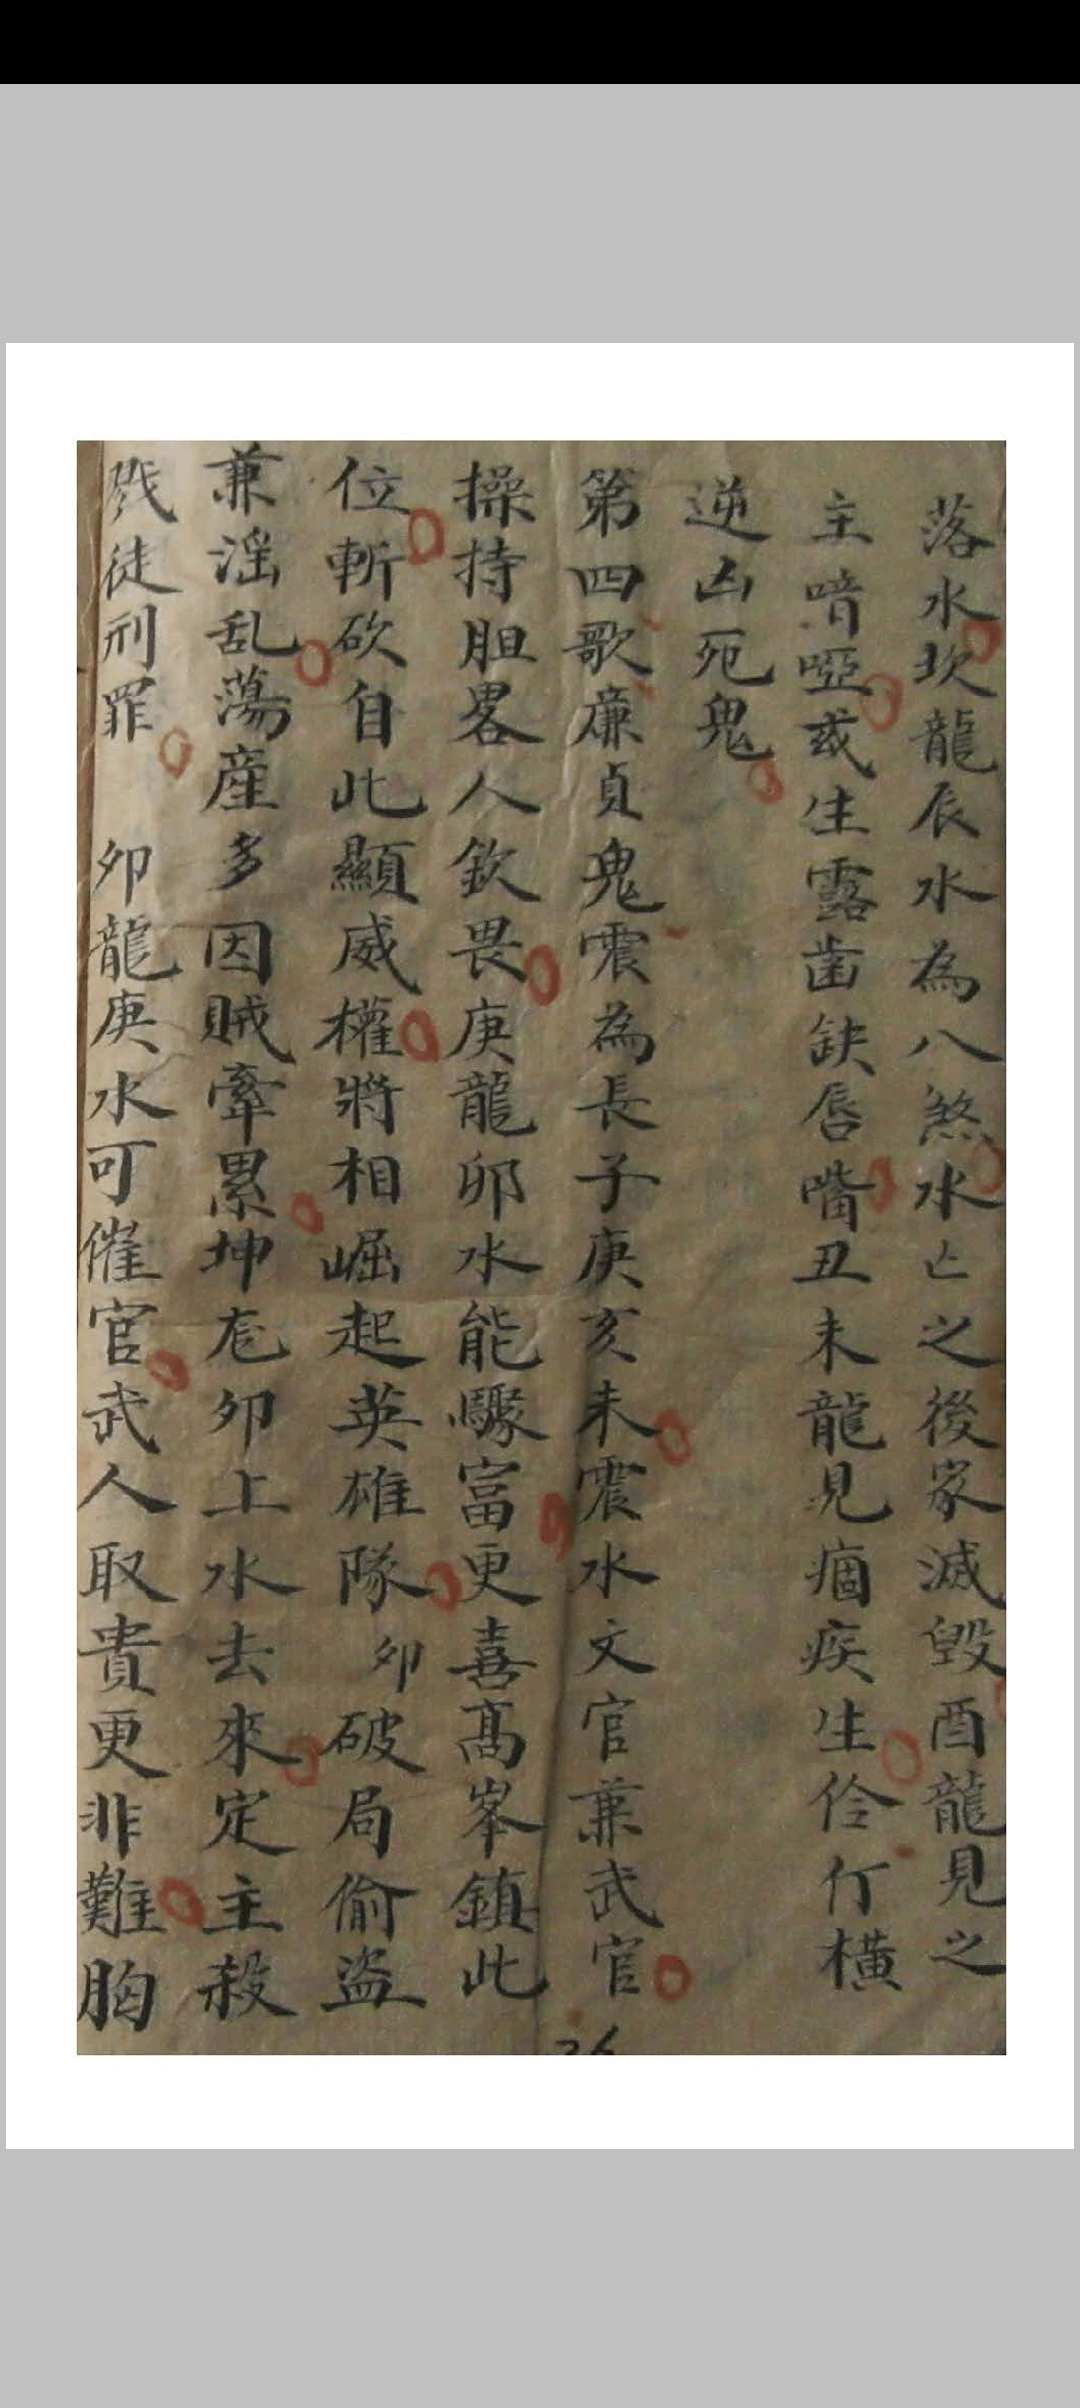 落水坎龍辰水為八煞水亡之後家滅毀酉龍見之
主喑啞或生露齒缺唇嘴丑未龍見痼疾生伶仃橫
逆凶死鬼
第四歌廉貞鬼震為長子庚亥未震水文官兼武官
操持胆畧人欽畏庚龍卯水能驟富更喜髙峯鎮此
位斬砍自此顯威權將相崛起英雄隊 卯破局偷盜
兼淫乱蕩産多因賊牽累坤卯上水去來定主殺
戮徒刑罪 卯龍庚水可催官武人取貴更非難胸
36